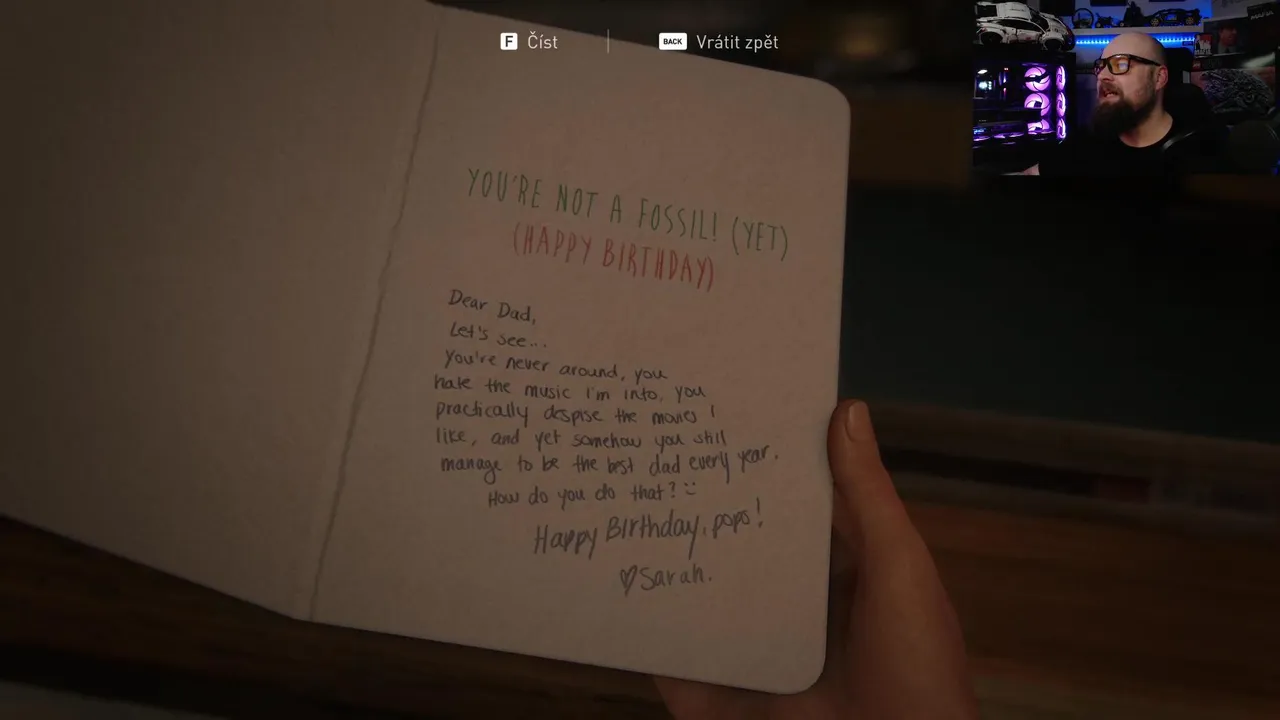 F Číst
BACK Vrátit zpět
YOU'RE NOT A FOSSIL! (YET)
(HAPPY BIRTHDAY)
Dear Dad,
Let's see...
you're never around, you
hate the music I'm into, you
practically despise the movies I
like, and yet somehow you still
manage to be the best dad every year.
How do you do that? :)
Happy Birthday, pops!
♡Sarah.